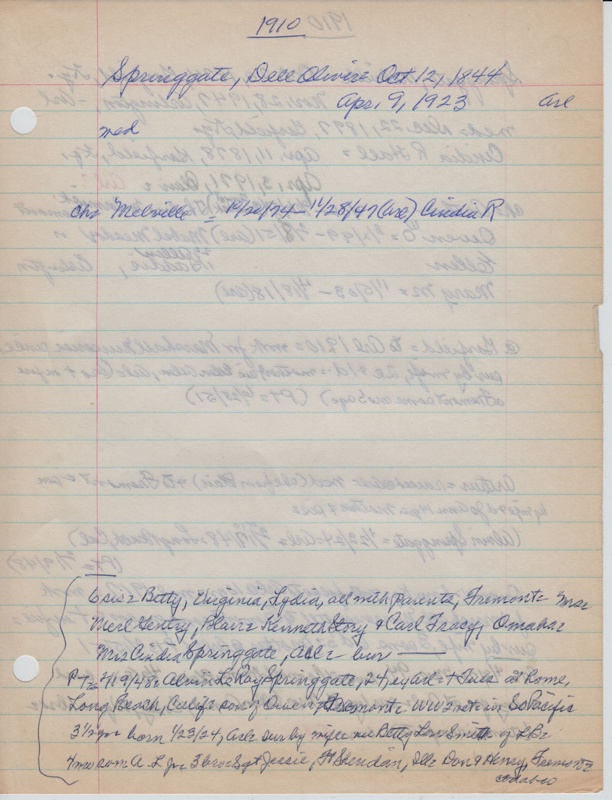 1910
Springgate, Dell Olivir= Oct. 12, 1844
Apr. 9, 1923 Arl
med
chs Melville = 10/20/74 - 11/28/47 (Arl) Cindia R
6 sis = Betty, Virginia, Lydia, all with Parents, Fremont = Mrs
Merl Gentry, Blair = Kenneth Story & Carl Tracy, Omaha =
Mrs Cindia Springgate, Arl = bur
Pt 2/19/48 = Alvin LeRoy Springgate, 24, ex Arl = + Tues at home,
Long Beach, Calif = son of Owen, Fremont = WW2 vet = in So Pacific
3 1/2 yr = born 1/23/24, Arl = sur by wife = nee Betty Lou Smith of LB =
4 mo son = A L Jr = 3 bro = Sgt Jessie, Ft Sheridan, Ill = Don & Henry, Fremont =